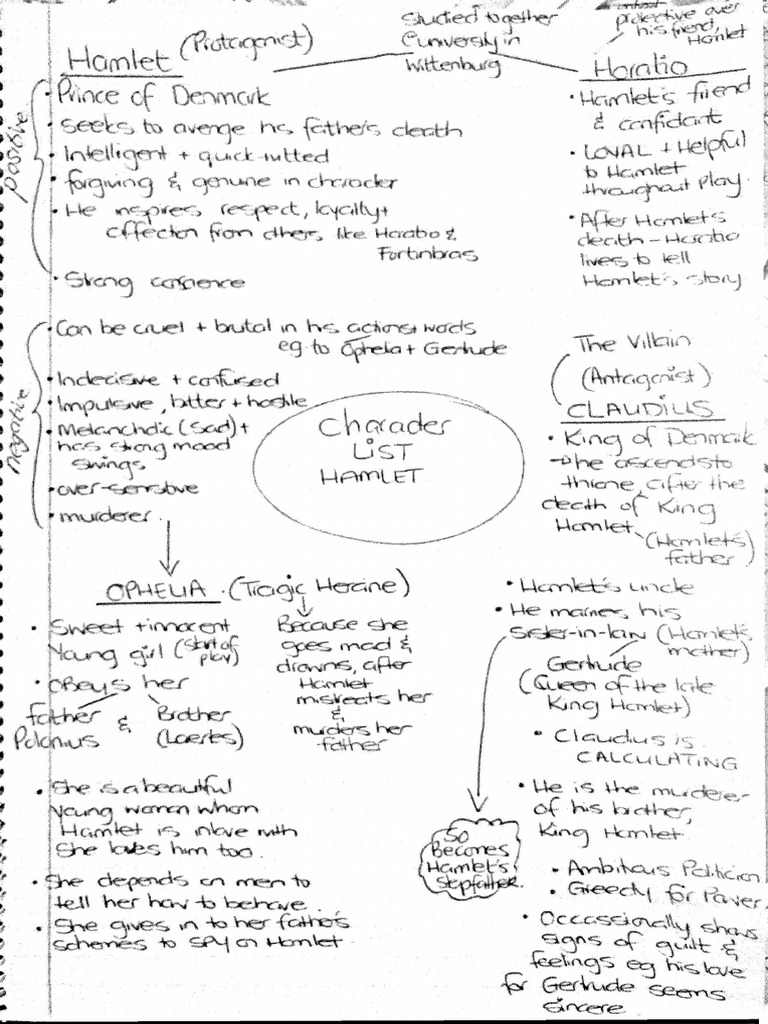 Hamlet (Protagonist)
Studied together
@ university in
Wittenburg
protective over
his friend,
Hamlet
Horatio
positive
• Prince of Denmark
• Seeks to avenge his father's death
• Intelligent + quick-witted
• forgiving & genuine in character
• He inspires respect, loyalty +
affection from others, like Horatio &
Fortinbras
• Strong conscience
• Hamlet's friend
& confidant
• LOYAL + Helpful
to Hamlet
throughout play
• After Hamlet's
death - Horatio
lives to tell
Hamlet's story
negative
• Can be cruel + brutal in his actions + words
eg to Ophelia + Gertrude
• Indecisive + confused
• Impulsive, bitter + hostile
• Melancholic (sad) +
has strong mood
swings
• over-sensitive
• murderer
Character
LIST
HAMLET
The Villain
(Antagonist)
CLAUDIUS
• King of Denmark
→ he ascends to
throne, after the
death of King
Hamlet (Hamlet's
father)
• Hamlet's uncle
• He marries his
sister-in-law (Hamlet's
mother)
Gertrude
(Queen of the late
King Hamlet)
• Claudius is
CALCULATING
• He is the murderer
of his brother,
King Hamlet
• Ambitious Politician
• Greedy for Power
• Occassionally shows
signs of guilt &
feelings eg his love
for Gertrude seems
sincere
So
Becomes
Hamlet's
Stepfather.
OPHELIA (Tragic Heroine)
• Sweet + innocent
Young girl (start of
play)
• Obeys her
father & Brother
Polonius (Laertes)
Because she
goes mad &
drowns, after
Hamlet
mistreats her
&
murders her
father
• She is a beautiful
young woman whom
Hamlet is inlove with
She loves him too.
• She depends on men to
tell her how to behave.
• She gives in to her father's
schemes to spy on Hamlet